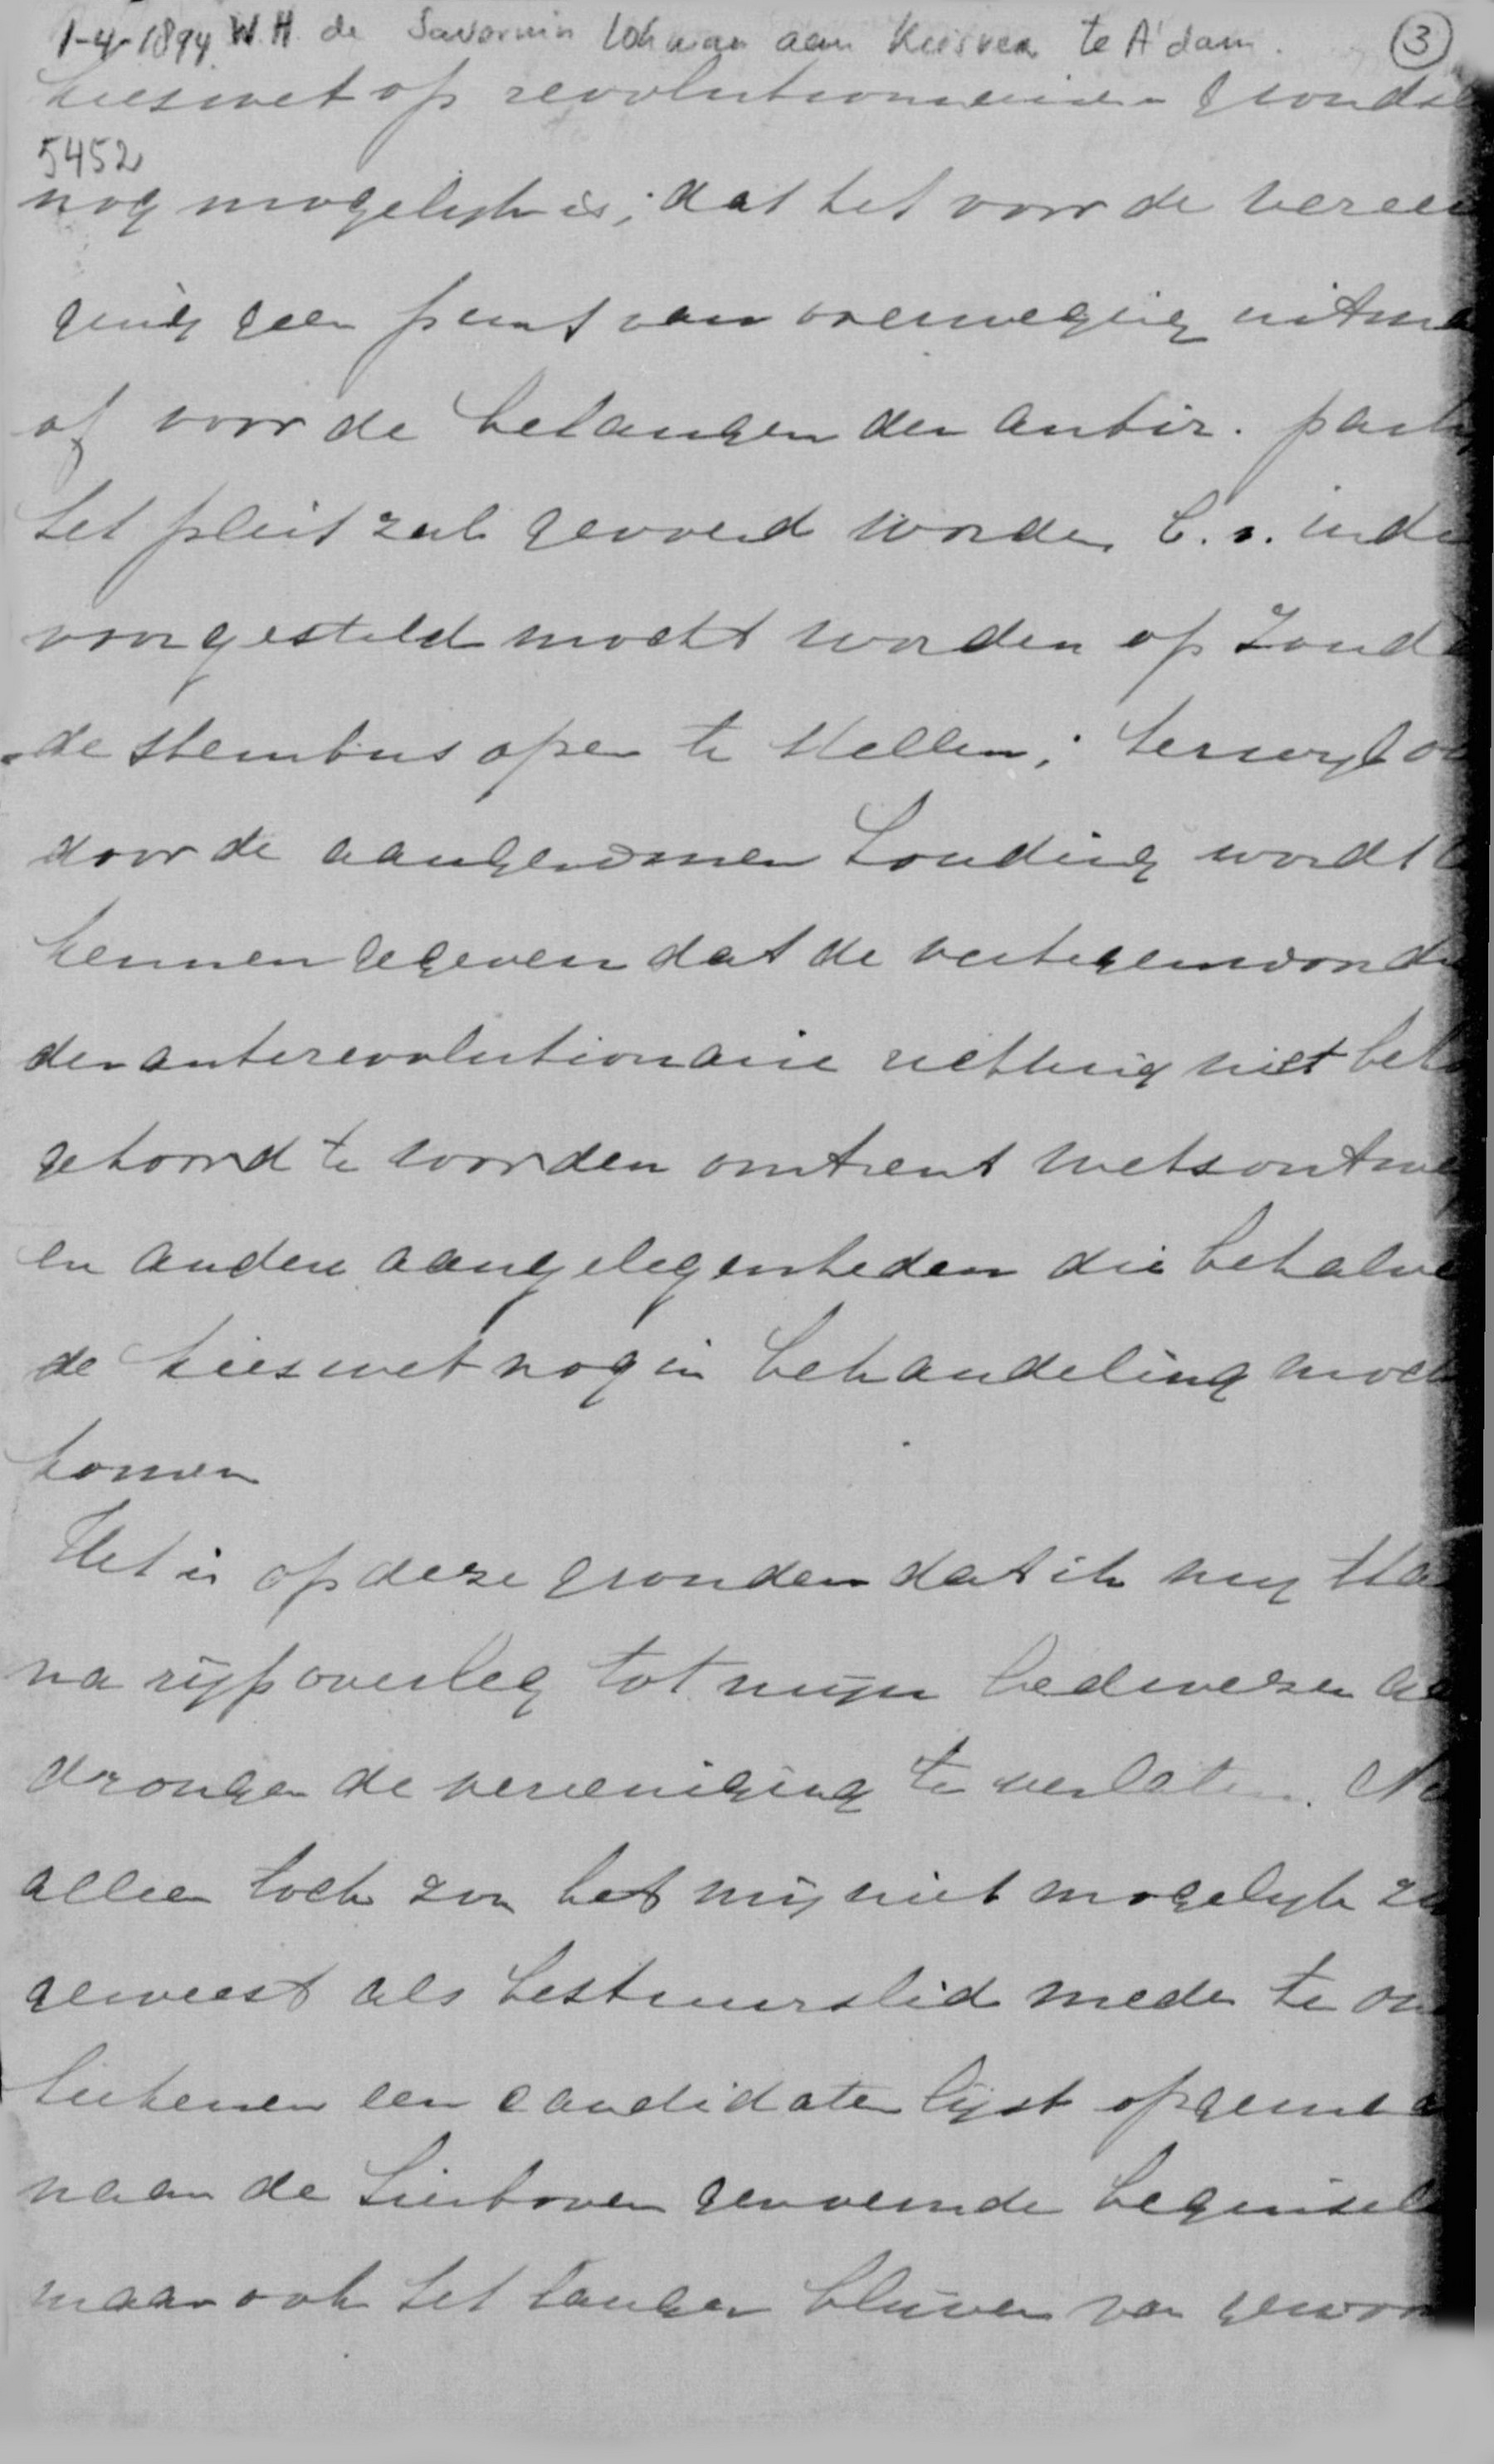 1-4-1894 W.H. de Savornin Lohman aan Kiesver. te A'dam. 3
kieswet op revolutionnairen grondsl
5452
nog mogelijk is; dat het voor de vereen
ging geen punt van overweging uitma
of voor de belangen der antir. partij
het pleit zal gevoerd worden b.v. inde
voorgesteld mocht worden op Zonda
de stembus open te stellen; terwijl oo
door de aangenomen houding wordt t
kennen gegeven dat de vertegenwoordi
der antirevolutionaire richting niet beho
gehoord te worden omtrent wetsontwe
en andere aangelegenheden die behalve
de kieswet nog in behandeling moch
komen
Het is op deze gronden dat ik mij tha
na rijp overleg tot mijn leedwezen ge
drongen de vereeniging te verlaten. Ni
alleen toch zou het mij niet mogelijk zij
geweest als bestuurslid mede te on
teekenen een candidatenlijst opgema
naar de hierboven genoemde beginsele
maar ook het langer blijven van gewoo